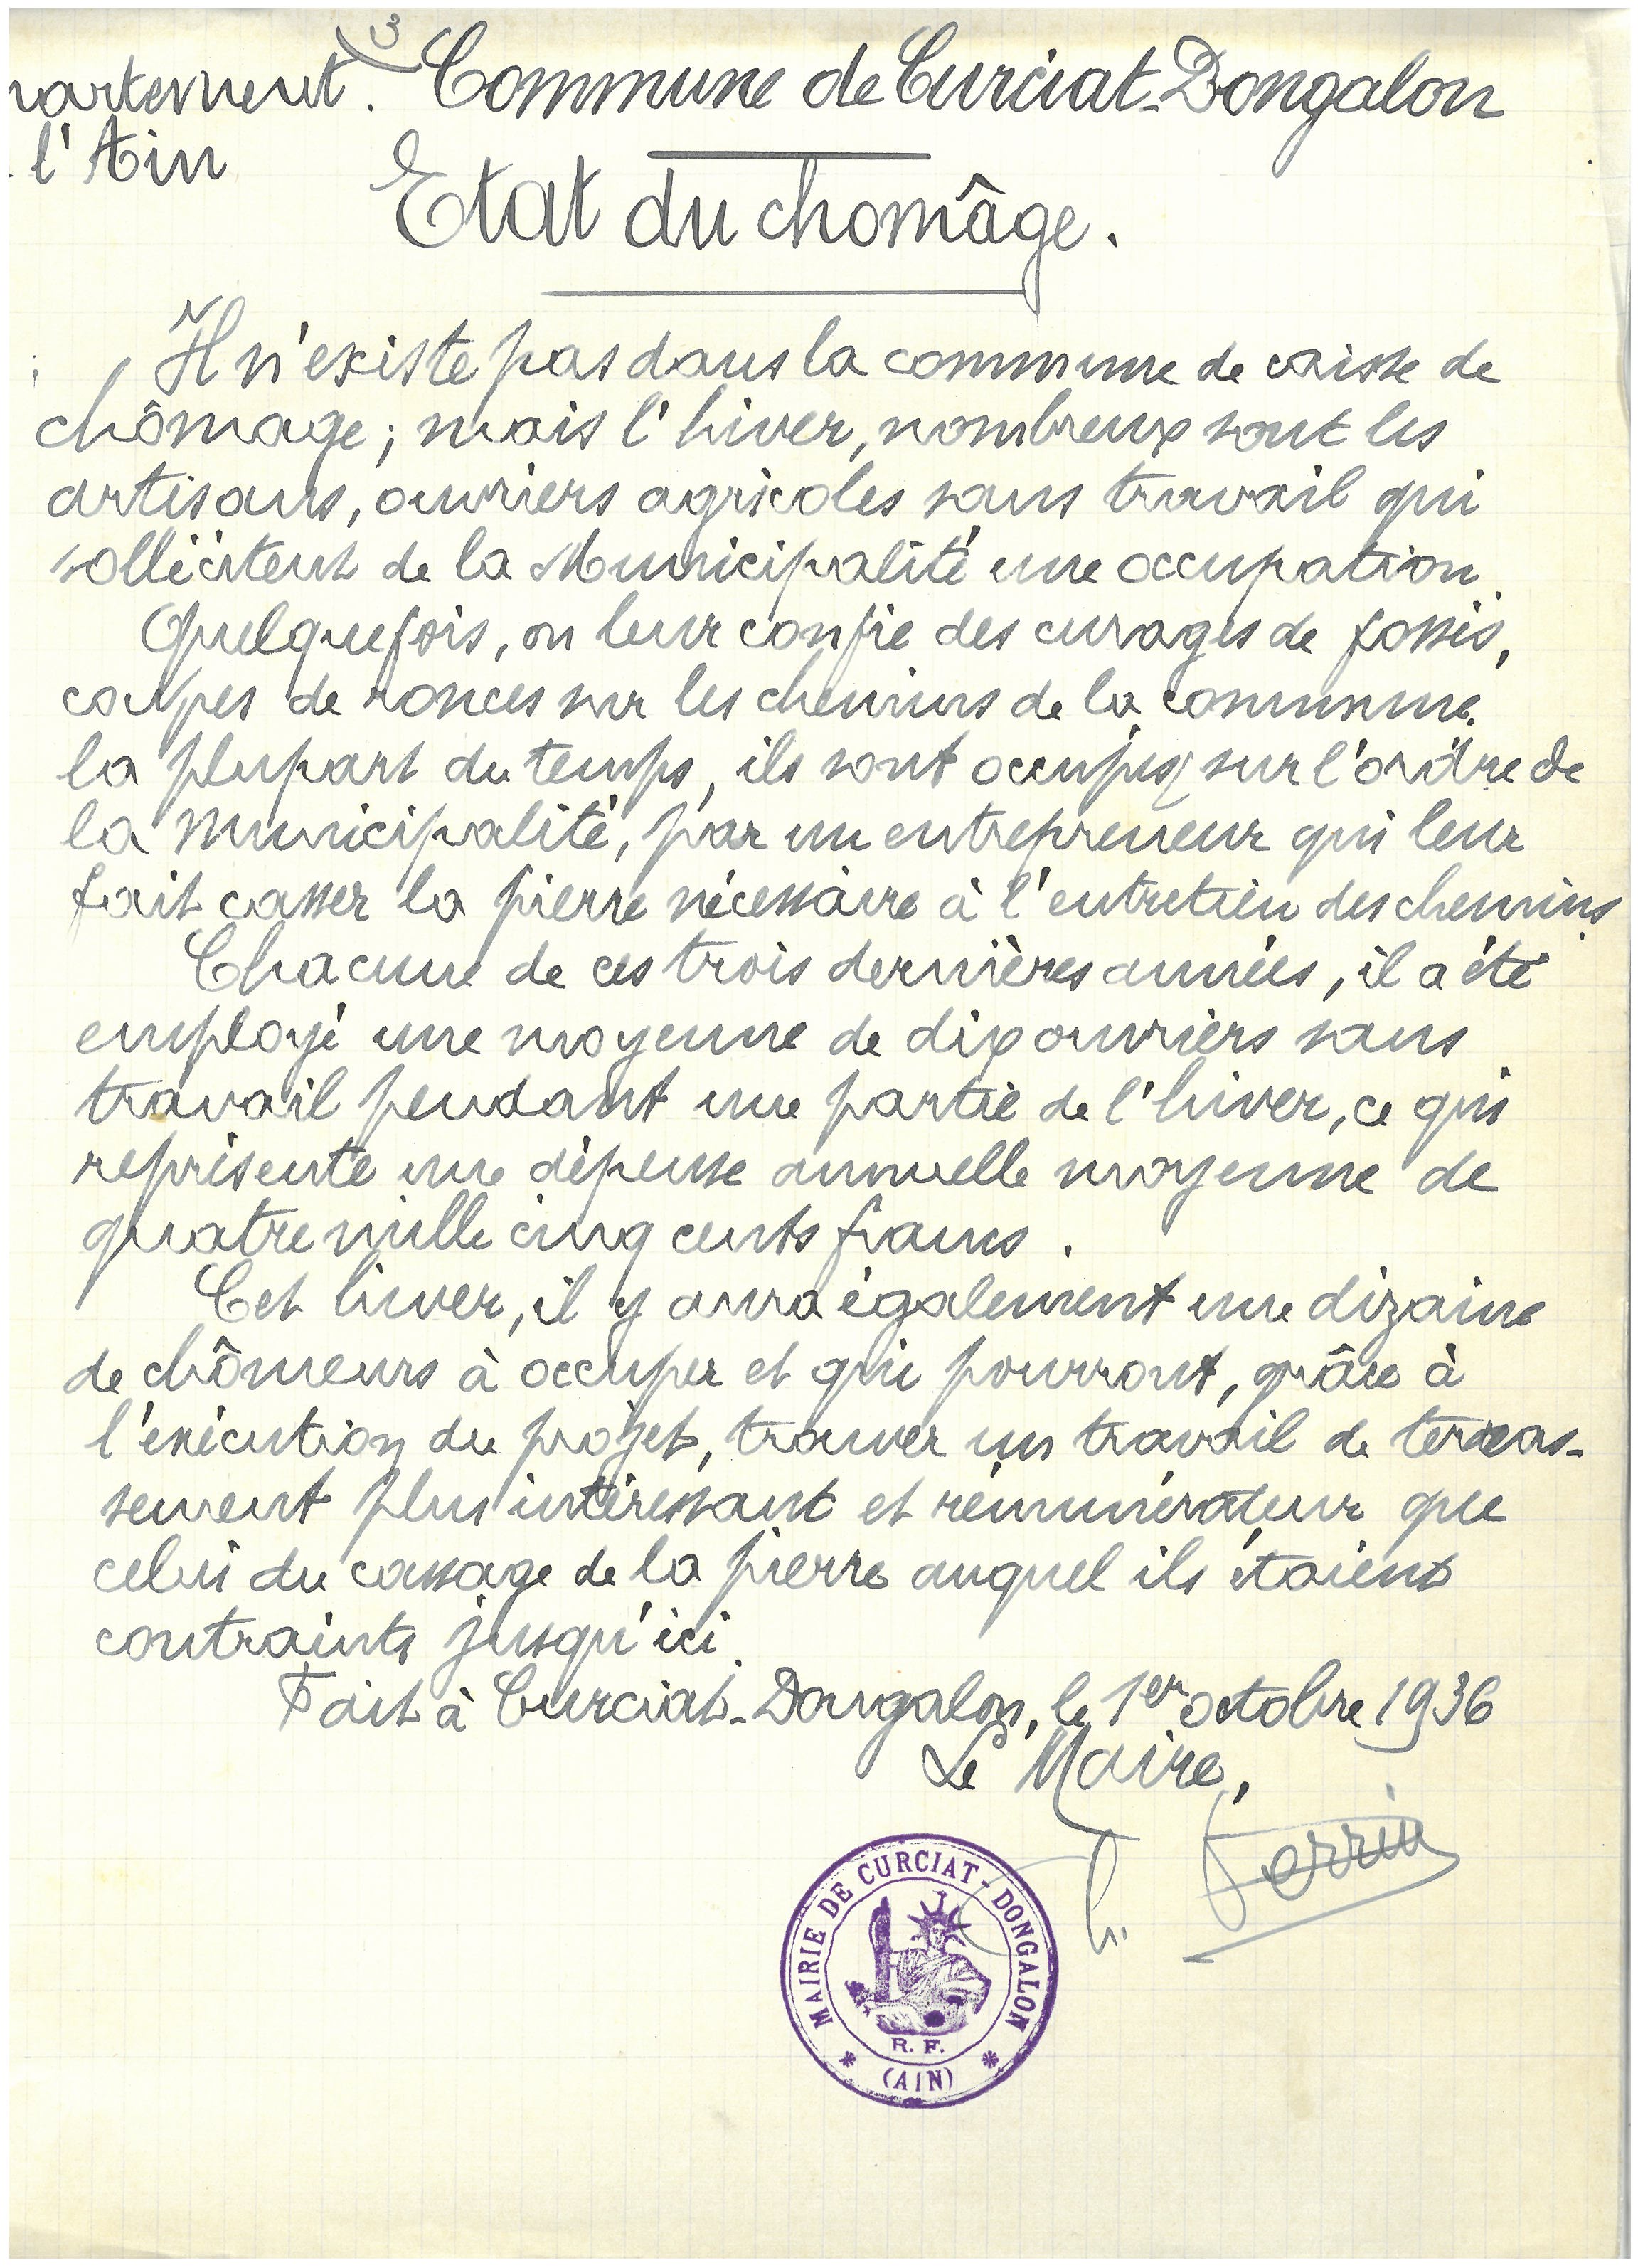 partement. 3 Commune de Curciat-Dongalon
l'Ain
Etat du chomâge.
Il n'existe pas dans la commune de caisse de
chômage; mais l'hiver, nombreux sont les
artisans, ouvriers agricoles sans travail qui
sollicitent de la Municipalité une occupation.
Quelquefois, on leur confie des curages de fossés,
coupes de ronces sur les chemins de la commune.
la plupart du temps, ils sont occupés, sur l'ordre de
la Municipalité, par un entrepreneur qui leur
fait casser la pierre nécessaire à l'entretien des chemins.
Chacune de ces trois dernières années, il a été
employé une moyenne de dix ouvriers sans
travail pendant une partie de l'hiver, ce qui
représente une dépense annuelle moyenne de
quatre mille cinq cents francs.
Cet hiver, il y aura également une dizaine
de chômeurs à occuper et qui pourront, grâce à
l'exécution du projet, trouver un travail de terras-
sement plus intéressant et rémunérateur que
celui du cassage de la pierre auquel ils étaient
contraints jusqu'ici.
Fait à Curciat-Dongalon, le 1er octobre 1936
Le Maire,
Perrin
MAIRIE DE CURCIAT-DONGALON
R. F.
* (AIN) *